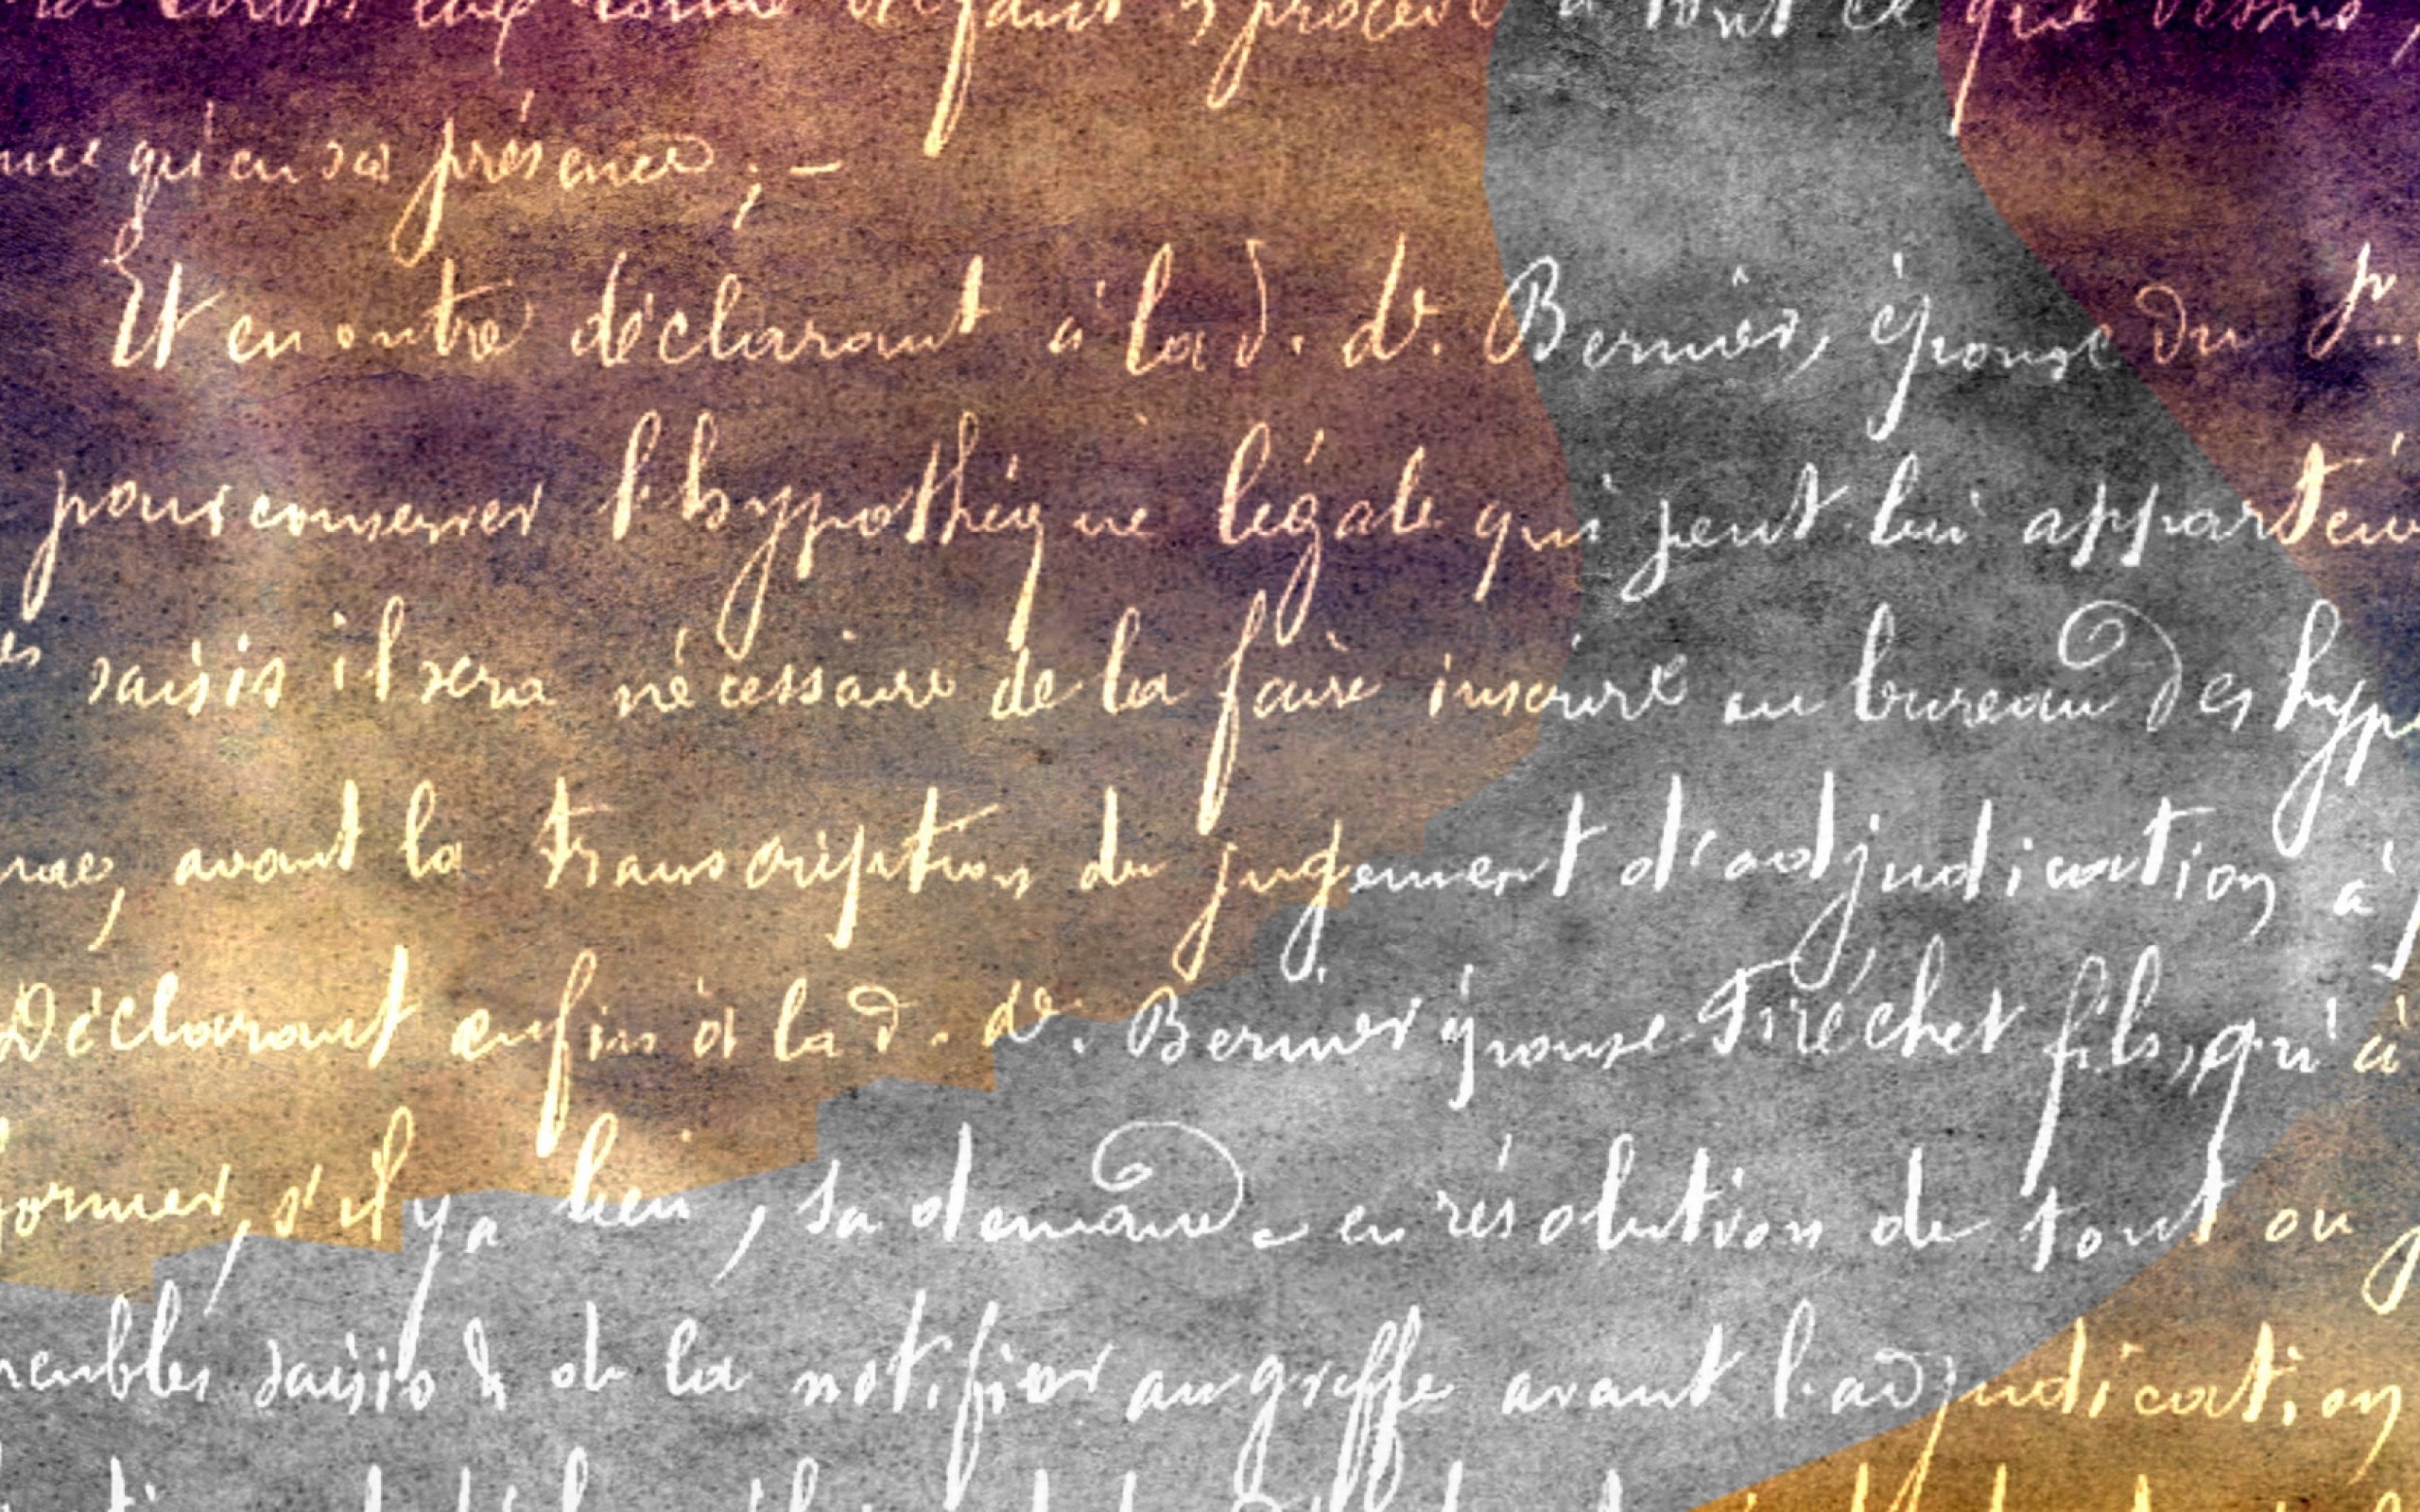 défaut, procédé à tout ce que dessus,
qu'en sa présence ; —
Et en outre déclarant à la d. de. Bernier, épouse du
pour conserver l'hypothèque légale qui peut lui apparten
es saisis il sera nécessaire de la faire inscrire au bureau des hyp
avant la transcription du jugement d'adjudication à
Déclarant enfin à la d. de. Bernier épouse Fréchet fils, qu'à
former, s'il y a lieu, sa demande en résolution de tout ou
meubles saisis & de la notifier au greffe avant l'adjudication